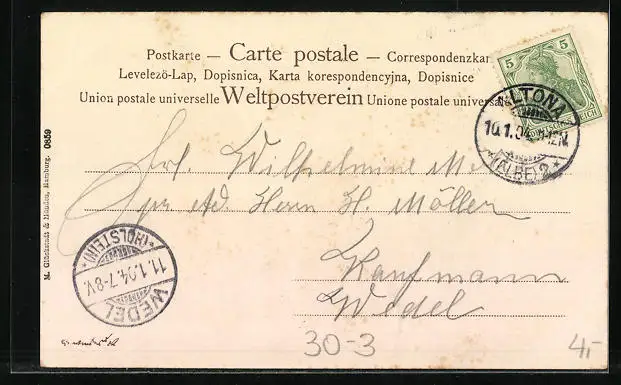 Postkarte — Carte postale — Correspondenzkar
Levelezö-Lap, Dopisnica, Karta korespondencyjna, Dopisnice
Union postale universelle Weltpostverein Unione postale universa
5 5
REICH
ALTONA
10.1.04
*(ELBE)2*
Frl. Wilhelmine M
pr Ad. Herrn H. Möller
Kaufmann
Wedel
M. Glückstadt & Münden, Hamburg. 0859
WEDEL
11.1.04.7-8V.
*(HOLSTEIN)*
30-3
4,-